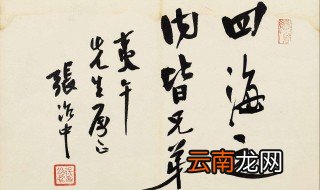 四海之
内皆兄弟
午
先生属正
張治中
云南龙网